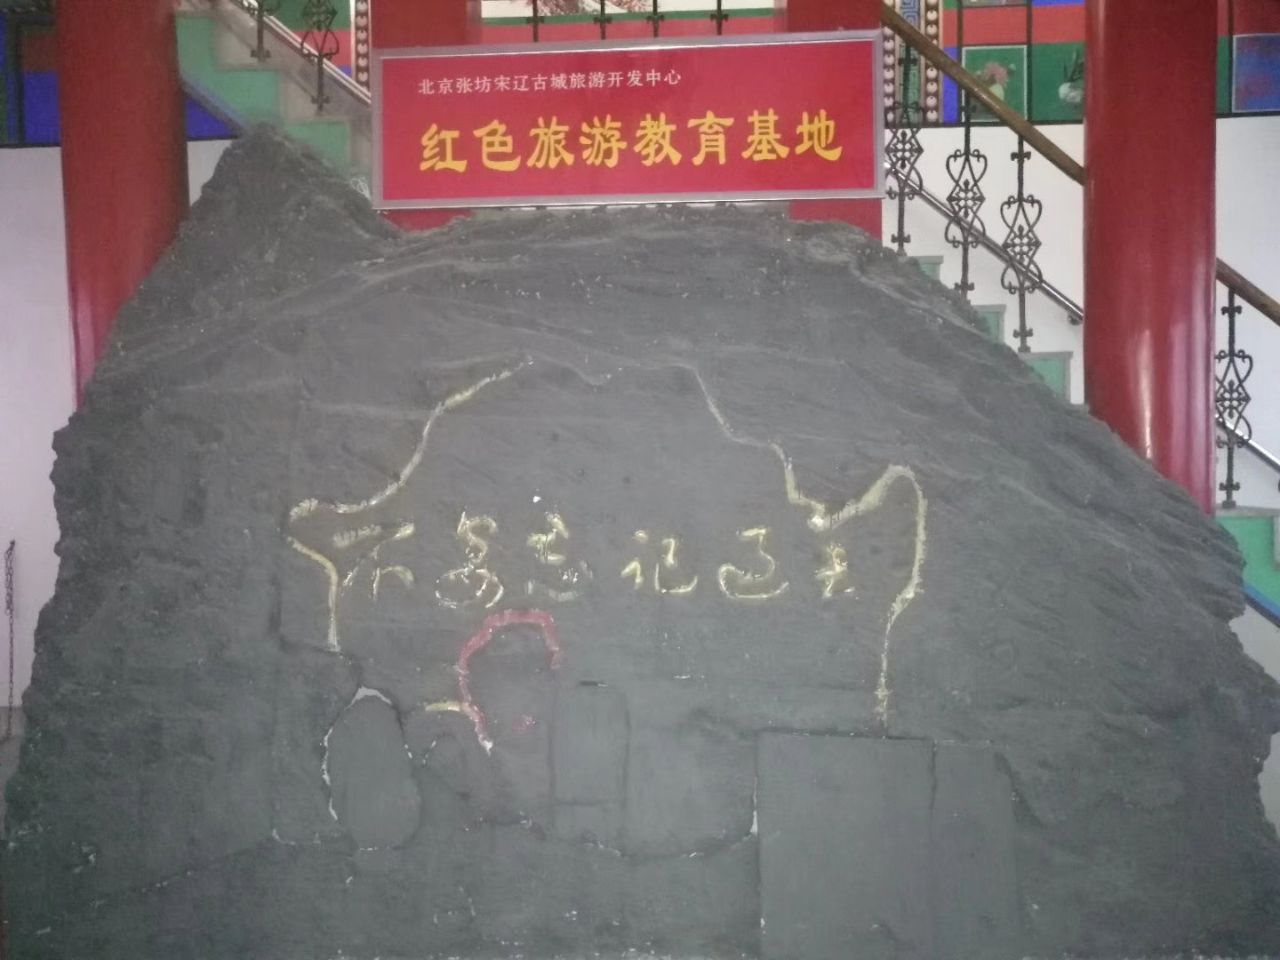 北京张坊宋辽古城旅游开发中心
红色旅游教育基地
不要忘记过去